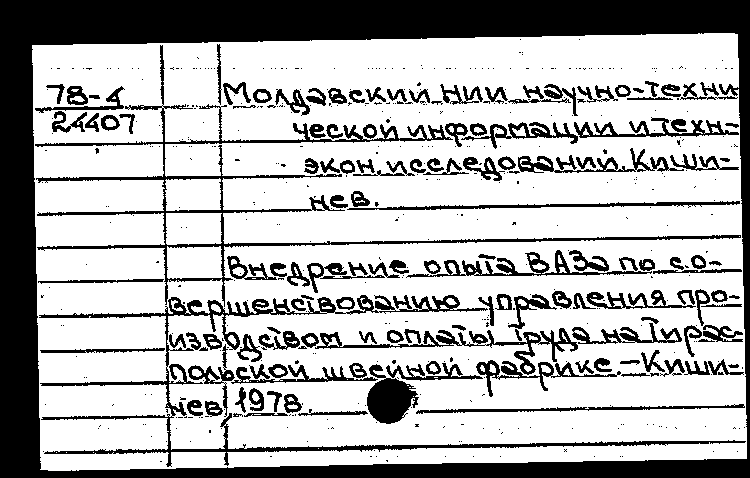 78-4 Молдавский НИИ научно-техни-
24407 ческой информации и техн.-
экон. исследований. Киши-
нев.
Внедрение опыта ВАЗа по со-
вершенствованию управления про-
изводством и оплаты труда на Тирас-
польской швейной фабрике.-Киши-
нев, 1978.